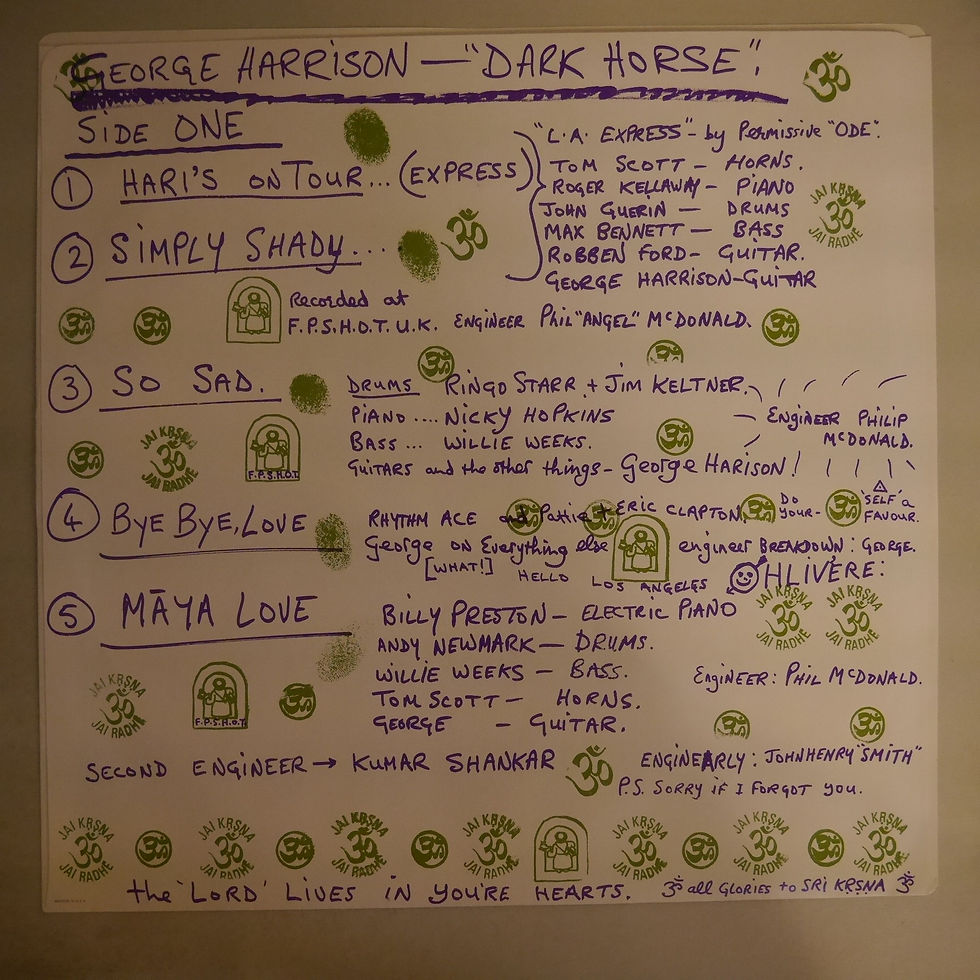 GEORGE HARRISON — "DARK HORSE".
SIDE ONE
① HARI'S ON TOUR... (EXPRESS)
"L.A. EXPRESS" - by Permissive "ODE".
TOM SCOTT — HORNS.
ROGER KELLAWAY — PIANO
JOHN GUERIN — DRUMS
MAX BENNETT — BASS
ROBBEN FORD — GUITAR.
GEORGE HARRISON — GUITAR
JAI KṚṢṆA
ॐ
JAI RADHE
② SIMPLY SHADY...
Recorded at
F.P.S.H.O.T. U.K. ENGINEER Phil "ANGEL" McDONALD.
③ SO SAD.
DRUMS RINGO STARR + JIM KELTNER.
PIANO .... NICKY HOPKINS
BASS ... WILLIE WEEKS.
GUITARS and the other things — George HARISON!
ENGINEER PHILIP
McDONALD.
JAI KṚṢṆA
ॐ
JAI RADHE
F.P.S.H.O.T.
④ BYE BYE, LOVE
RHYTHM ACE and Pattie + ERIC CLAPTON.
DO YOUR-
'SELF' a
FAVOUR.
George on Everything else engineer BREAKDOWN: GEORGE.
[WHAT!] HELLO LOS ANGELES
OHLIVERE:
⑤ MĀYA LOVE
BILLY PRESTON — ELECTRIC PIANO
ANDY NEWMARK — DRUMS.
WILLIE WEEKS — BASS.
TOM SCOTT — HORNS.
GEORGE — GUITAR.
JAI KṚṢṆA JAI KṚṢṆA
ॐ ॐ
JAI RADHE JAI RADHE
Engineer: PHIL McDONALD.
JAI KṚṢṆA
ॐ
JAI RADHE
F.P.S.H.O.T.
SECOND ENGINEER → KUMAR SHANKAR ॐ
ENGINEARLY: JOHNHENRY "SMITH"
P.S. SORRY IF I FORGOT YOU.
JAI KṚṢṆA JAI KṚṢṆA JAI KṚṢṆA JAI KṚṢṆA JAI KṚṢṆA JAI KṚṢṆA JAI KṚṢṆA
ॐ ॐ ॐ ॐ ॐ ॐ ॐ ॐ ॐ ॐ ॐ ॐ
JAI RADHE JAI RADHE JAI RADHE JAI RADHE JAI RADHE JAI RADHE JAI RADHE
the 'LORD' LIVES IN YOU'RE HEARTS. ॐ all GLORIES to SRI KṚṢṆA ॐ